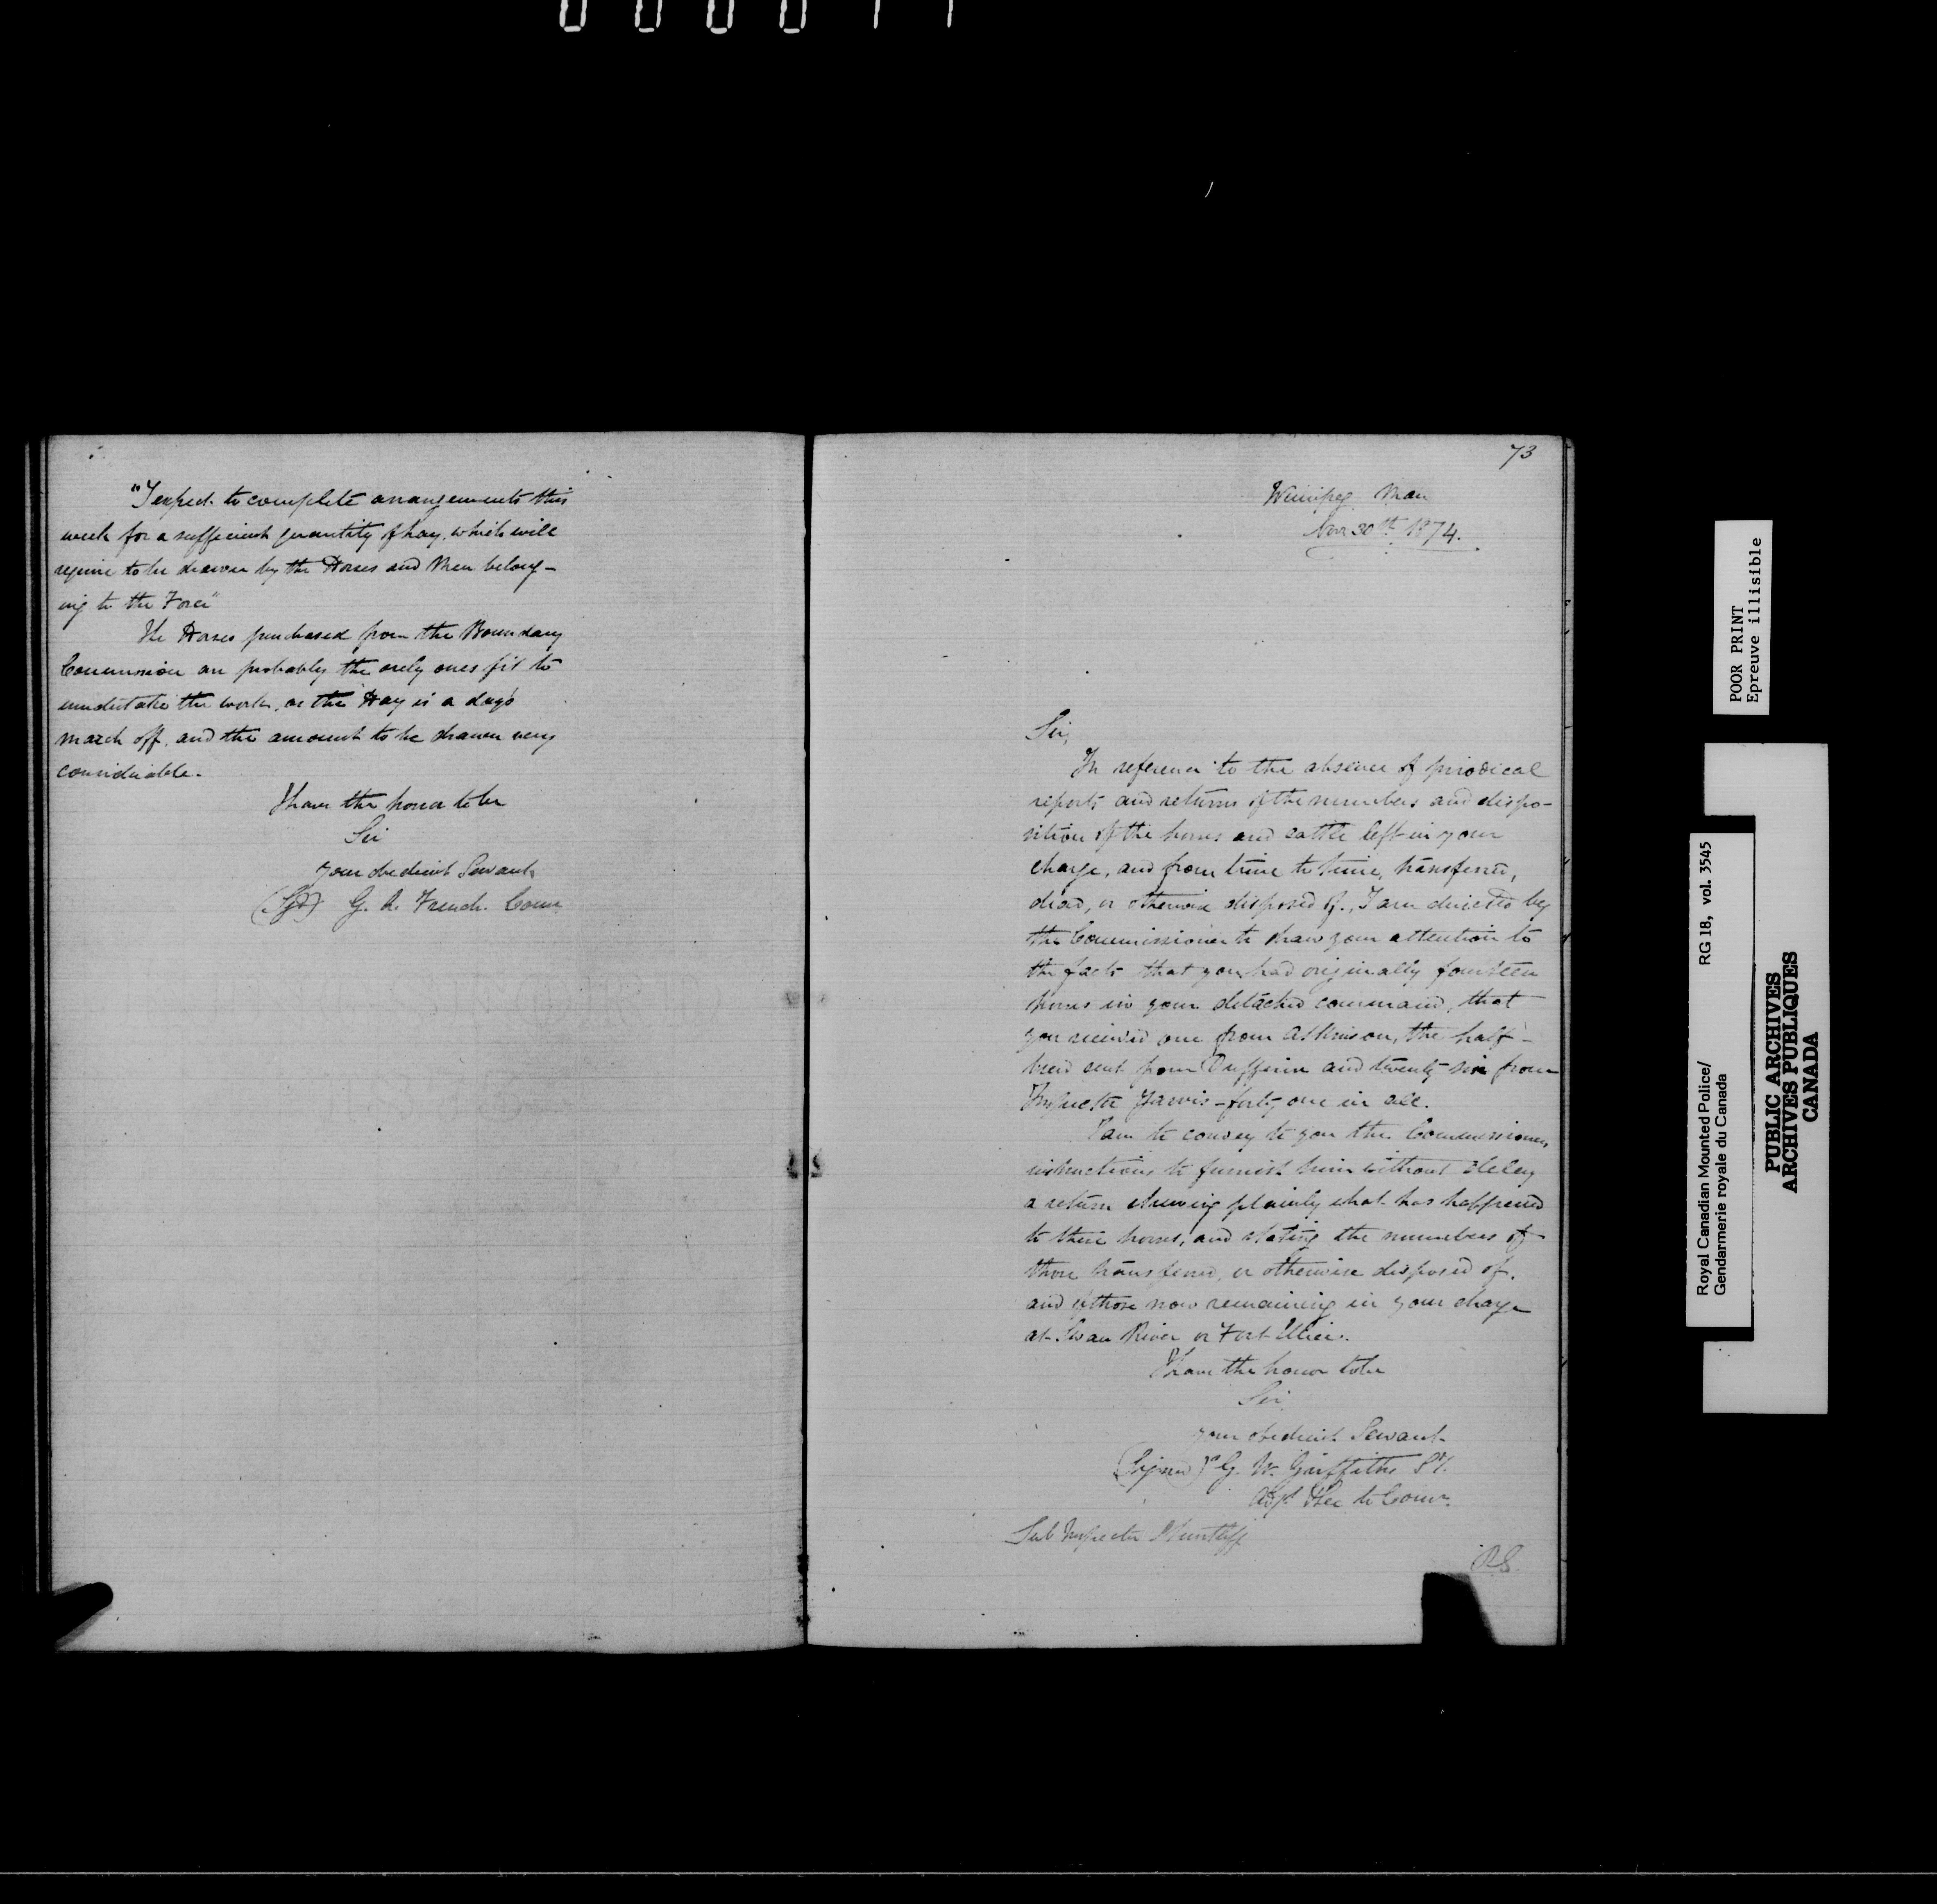 "I expect to complete arrangements this
week for a sufficient quantity of hay, which will
require to be drawn by the Horses and Men belong-
ing to the Force"
The Horses purchased from the Boundary
Commission are probably the only ones fit to
undertake the work, as the Hay is a days
march off, and the amount to be drawn very
considerable.
I have the honor to be
Sir
your obedient Servant
(Sgd) G. A. French. Comr
73
Winnipeg Man
Nov 30th 1874.
Sir,
In reference to the absence of periodical
reports and returns of the numbers and dispo-
sition of the horses and cattle left in your
charge, and from time to time, transferred,
dead, or otherwise disposed of, I am directed by
the Commissioner to draw your attention to
the facts that you had originally fourteen
horses in your detached command, that
you received one from Atkinson, the half-
breed sent from Dufferin and twenty six from
Inspector Jarvis - forty one in all.
I am to convey to you the Commissioners
instructions to furnish him without delay
a return shewing plainly what has happened
to these horses, and stating the numbers of
those transferred, or otherwise disposed of,
and of those now remaining in your charge
at Swan River or Fort Ellice.
I have the honor to be
Sir,
your obedient Servant
(Signed) G. W. Griffiths
Sec to Comr.
Sub Inspector Shurtliff
R.S.
POOR PRINT
Epreuve illisible
Royal Canadian Mounted Police/ RG 18, vol. 3545
Gendarmerie royale du Canada
PUBLIC ARCHIVES
ARCHIVES PUBLIQUES
CANADA